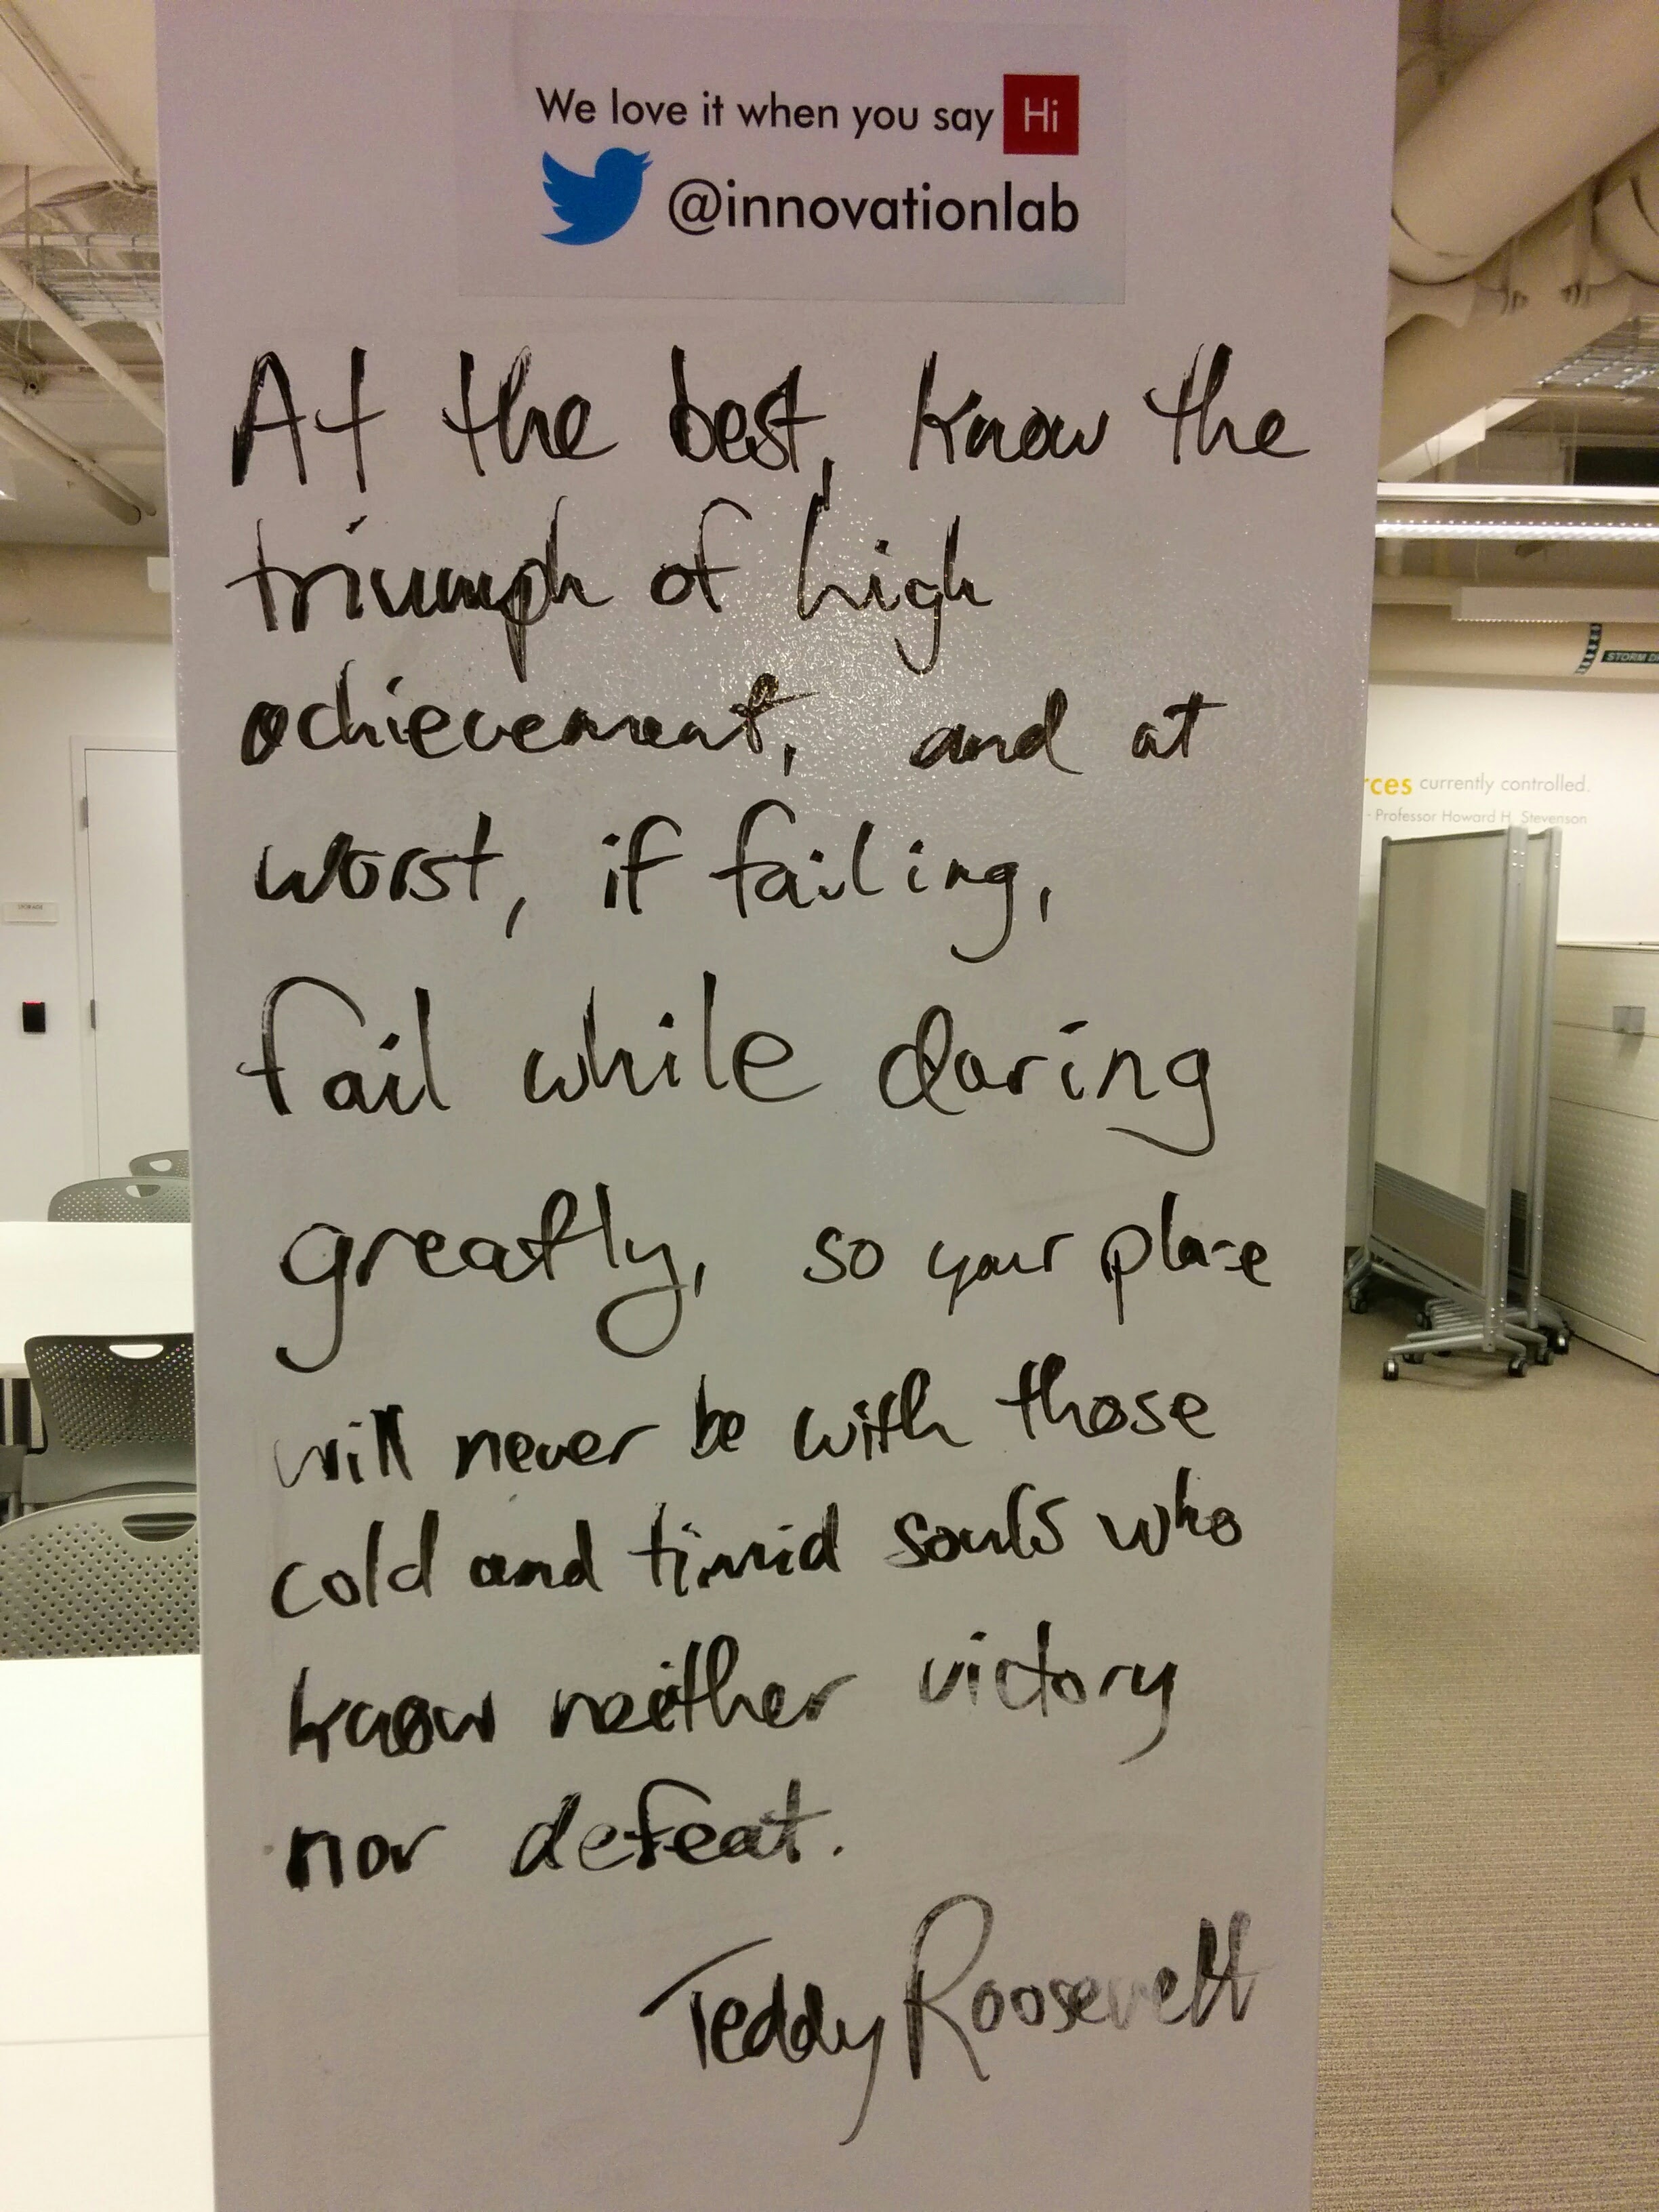 We love it when you say Hi
@innovationlab
At the best, know the
triumph of high
achievement, and at
worst, if failing,
fail while daring
greatly, so your place
will never be with those
cold and timid souls who
know neither victory
nor defeat.
Teddy Roosevelt
STORM D
rces currently controlled.
- Professor Howard H. Stevenson